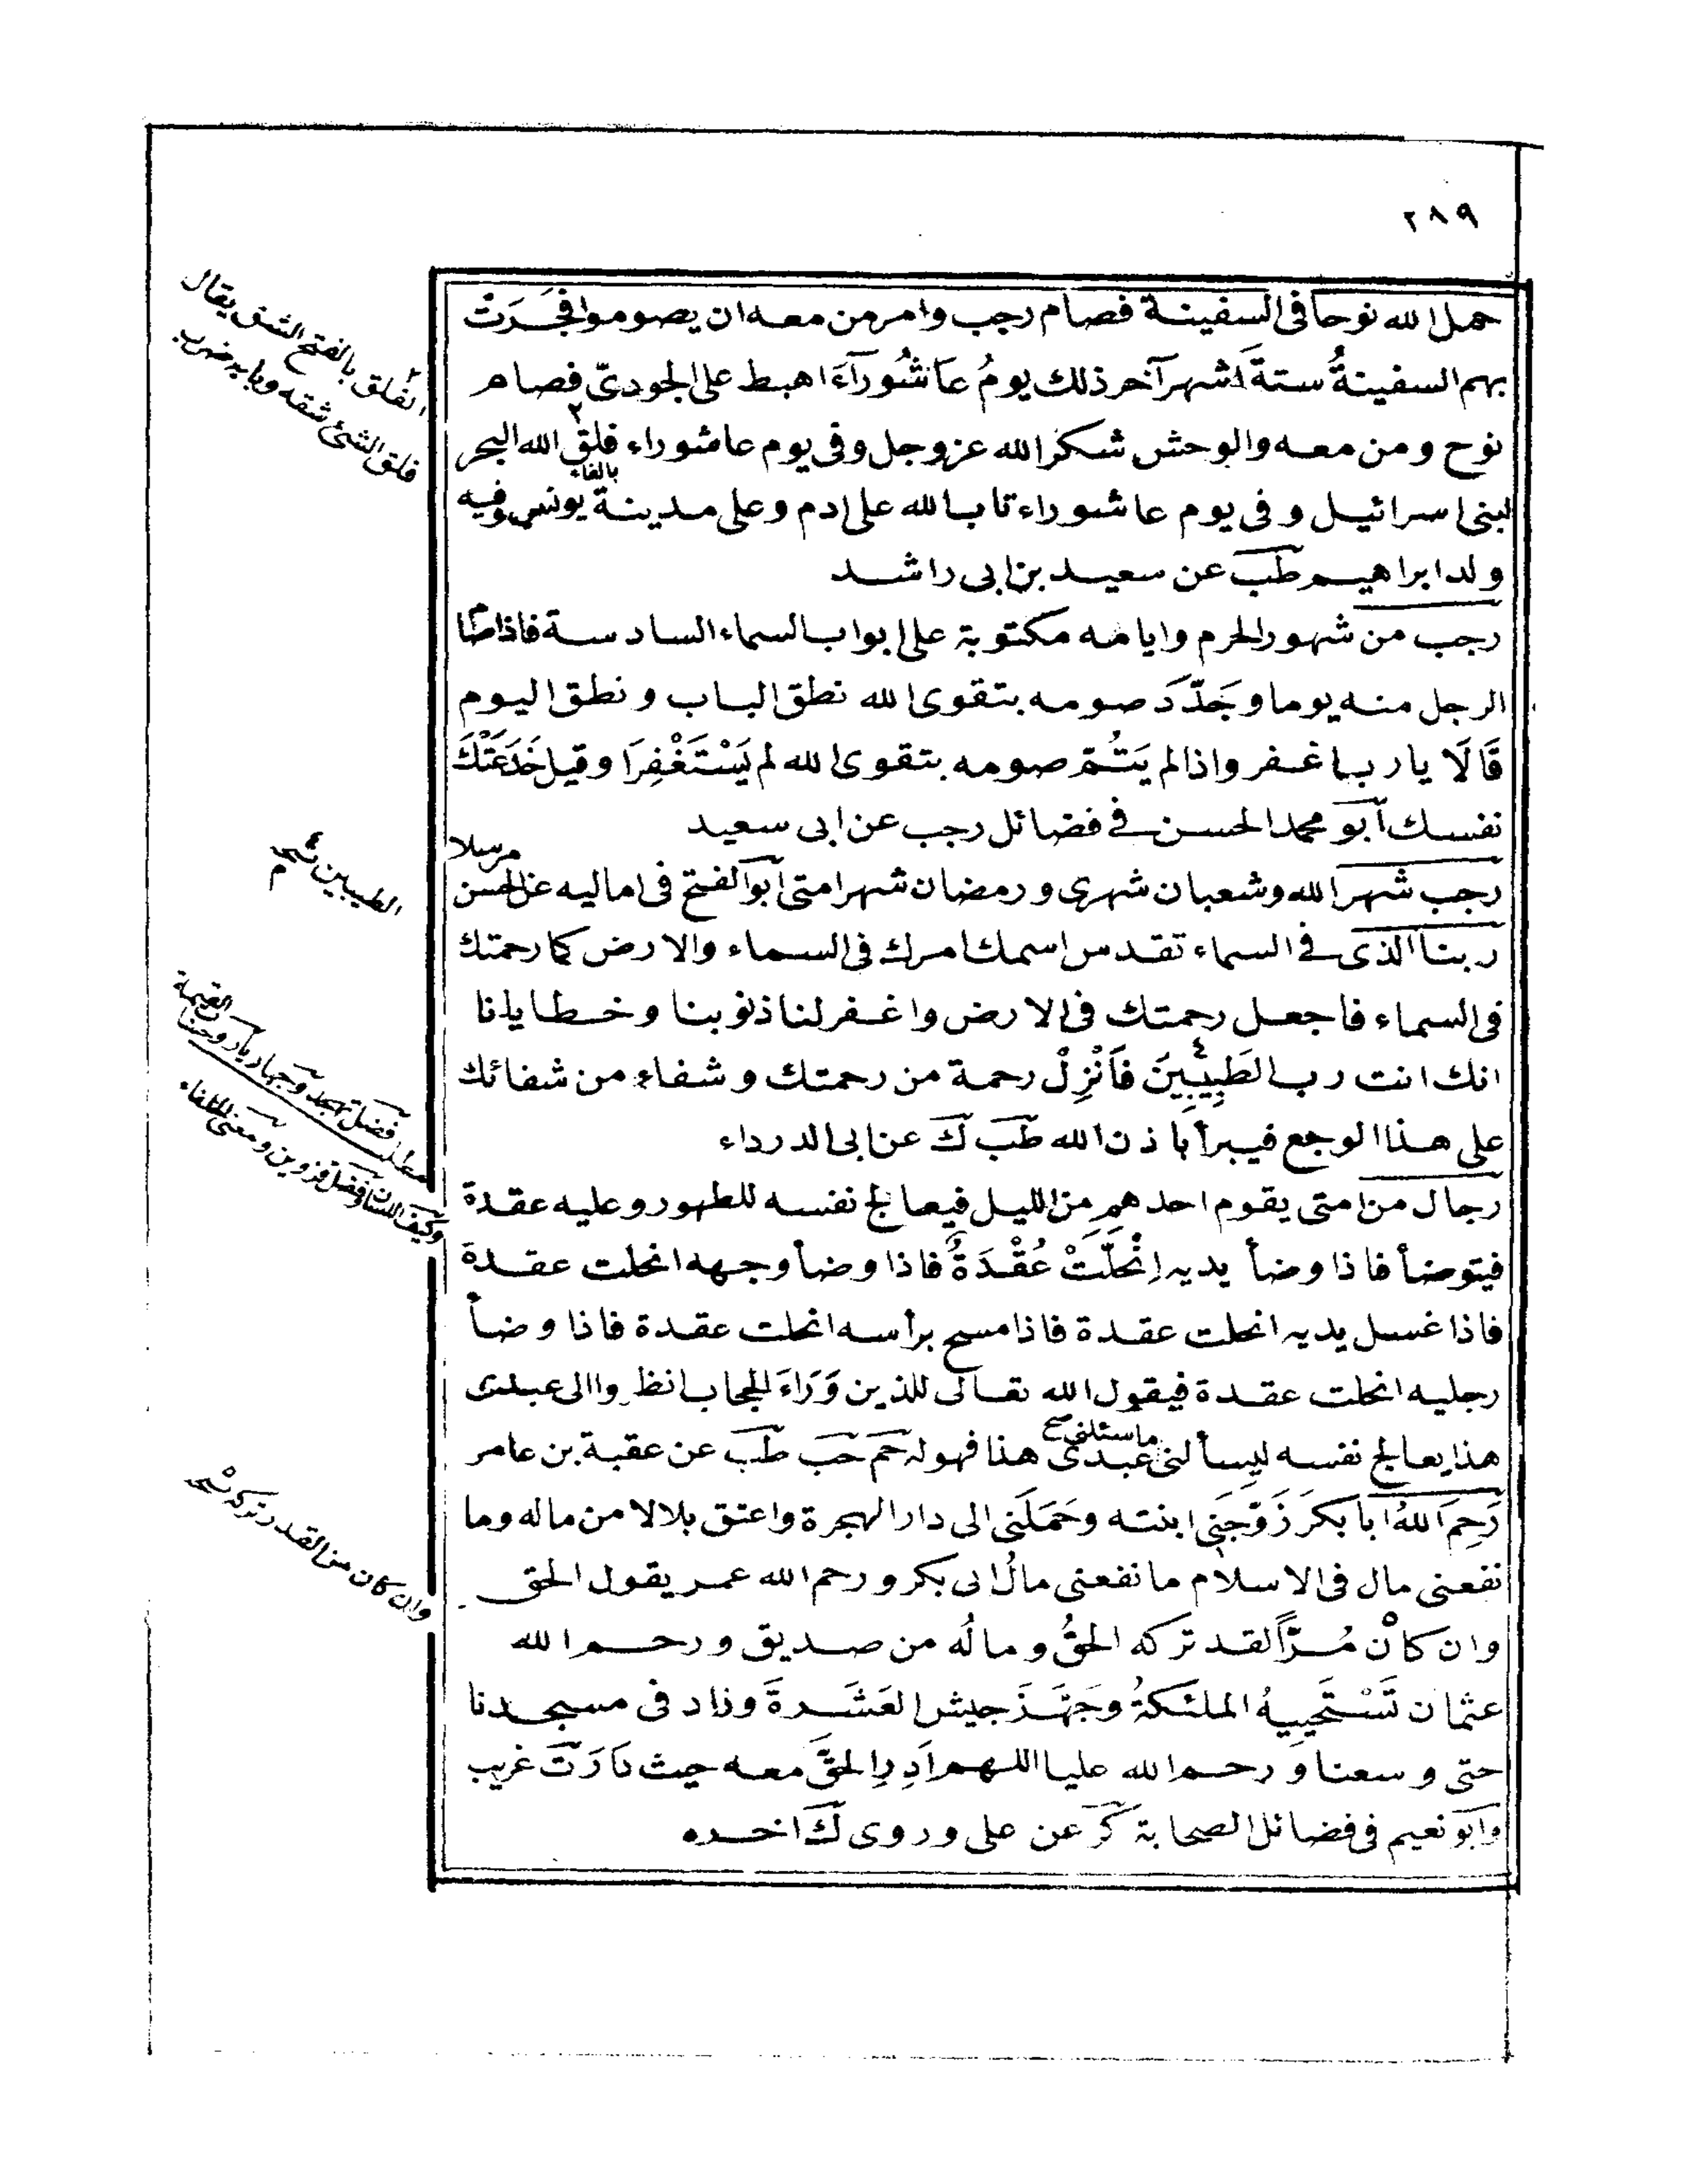 ٢٨٩
حمل الله نوحا فى السفينة فصام رجب وامر من معه ان يصوموا فجَرَتْ
بهم السفينةُ ستةَ اشهر آخر ذلك يومُ عَاشُورَآءَ اهبط على الجودىّ فصام
نوح ومن معه والوحش شكرا لله عز وجل وفى يوم عاشوراء فلق٢ الله البحر
بالفاء
لبنى اسرائيل وفى يوم عاشوراء تاب الله على ادم وعلى مدينة يونس وفيه
ولد ابراهيم طب عن سعيد بن ابى راشد
رجب من شهور الحرم وايامه مكتوبة على ابواب السماء السادسة فاذا صام
الرجل منه يوما وجَدَّدَ صومه بتقوى الله نطق الباب ونطق اليوم
قَالَا يا رب اغفر واذا لم يَتُمَّ صومه بتقوى الله لم يَسْتَغْفِرَا وقيل خَدَعَتْكَ
نفسك ابو محمد الحسن فى فضائل رجب عن ابى سعيد
مرسلا
رجب شهر الله وشعبان شهرى ورمضان شهر امتى ابو الفتح فى اماليه عن الحسن
ربنا الذى فى السماء تقدس اسمك امرك فى السماء والارض كما رحمتك
فى السماء فاجعل رحمتك فى الارض واغفر لنا ذنوبنا وخطايانا
انك انت رب الطَيِبِينَ٤ فَاَنْزِلْ رحمة من رحمتك وشفاء من شفائك
على هذا الوجع فيبرأ باذن الله طب ك عن ابى الدرداء
رجال من امتى يقوم احدهم مِنَ الليل فيعالج نفسه للطهور وعليه عقدة
فيتوضأ فاذا وضأ يديه اِنْحَلَّتْ عُقْدَةٌ فاذا وضأ وجهه انحلت عقدة
فاذا غسل يديه انحلت عقدة فاذا مسح برأسه انحلت عقدة فاذا وضأ
رجليه انحلت عقدة فيقول الله تعالى للذين وَرَاءَ الحجاب انظروا الى عبدى
ما سئلنى صح
هذا يعالج نفسه ليسألنى عبدى هذا فهو له حم حب طب عن عقبة بن عامر
رَحِمَ اللهُ اَبا بكر زَوَّجَنِى ابنته وحَمَلَنى الى دار الهجرة واعتق بلالا من ماله وما
نفعنى مال فى الاسلام ما نفعنى مالُ ابى بكر ورحم الله عمر يقول الحق
وان كان٥ مُرّاً لقد تركه الحقُّ وما لُه من صديق ورحم الله
عثمان تَسْتَحْيِيهُ الملئكةُ وجَهَّزَ جيش العَشَرةَ وزاد فى مسجدنا
حتى وسعنا ورحم الله عليا اللهم اَدِرِ الحقَّ معه حيث دَارَتْ غريب
وابو نعيم فى فضائل الصحابة كر عن على وروى ك اخره
٢ الفلق بالفتح الشق يقال
فلق الشئ شقه وبابه ضرب
الطيبين نسخه٤
م
مطلب فضل تهجد وچهار يار وحبنا
وكيف اللسان وفضل قزوين ومعنى الخلفاء
وان كان من القدر تركه نسخه٥